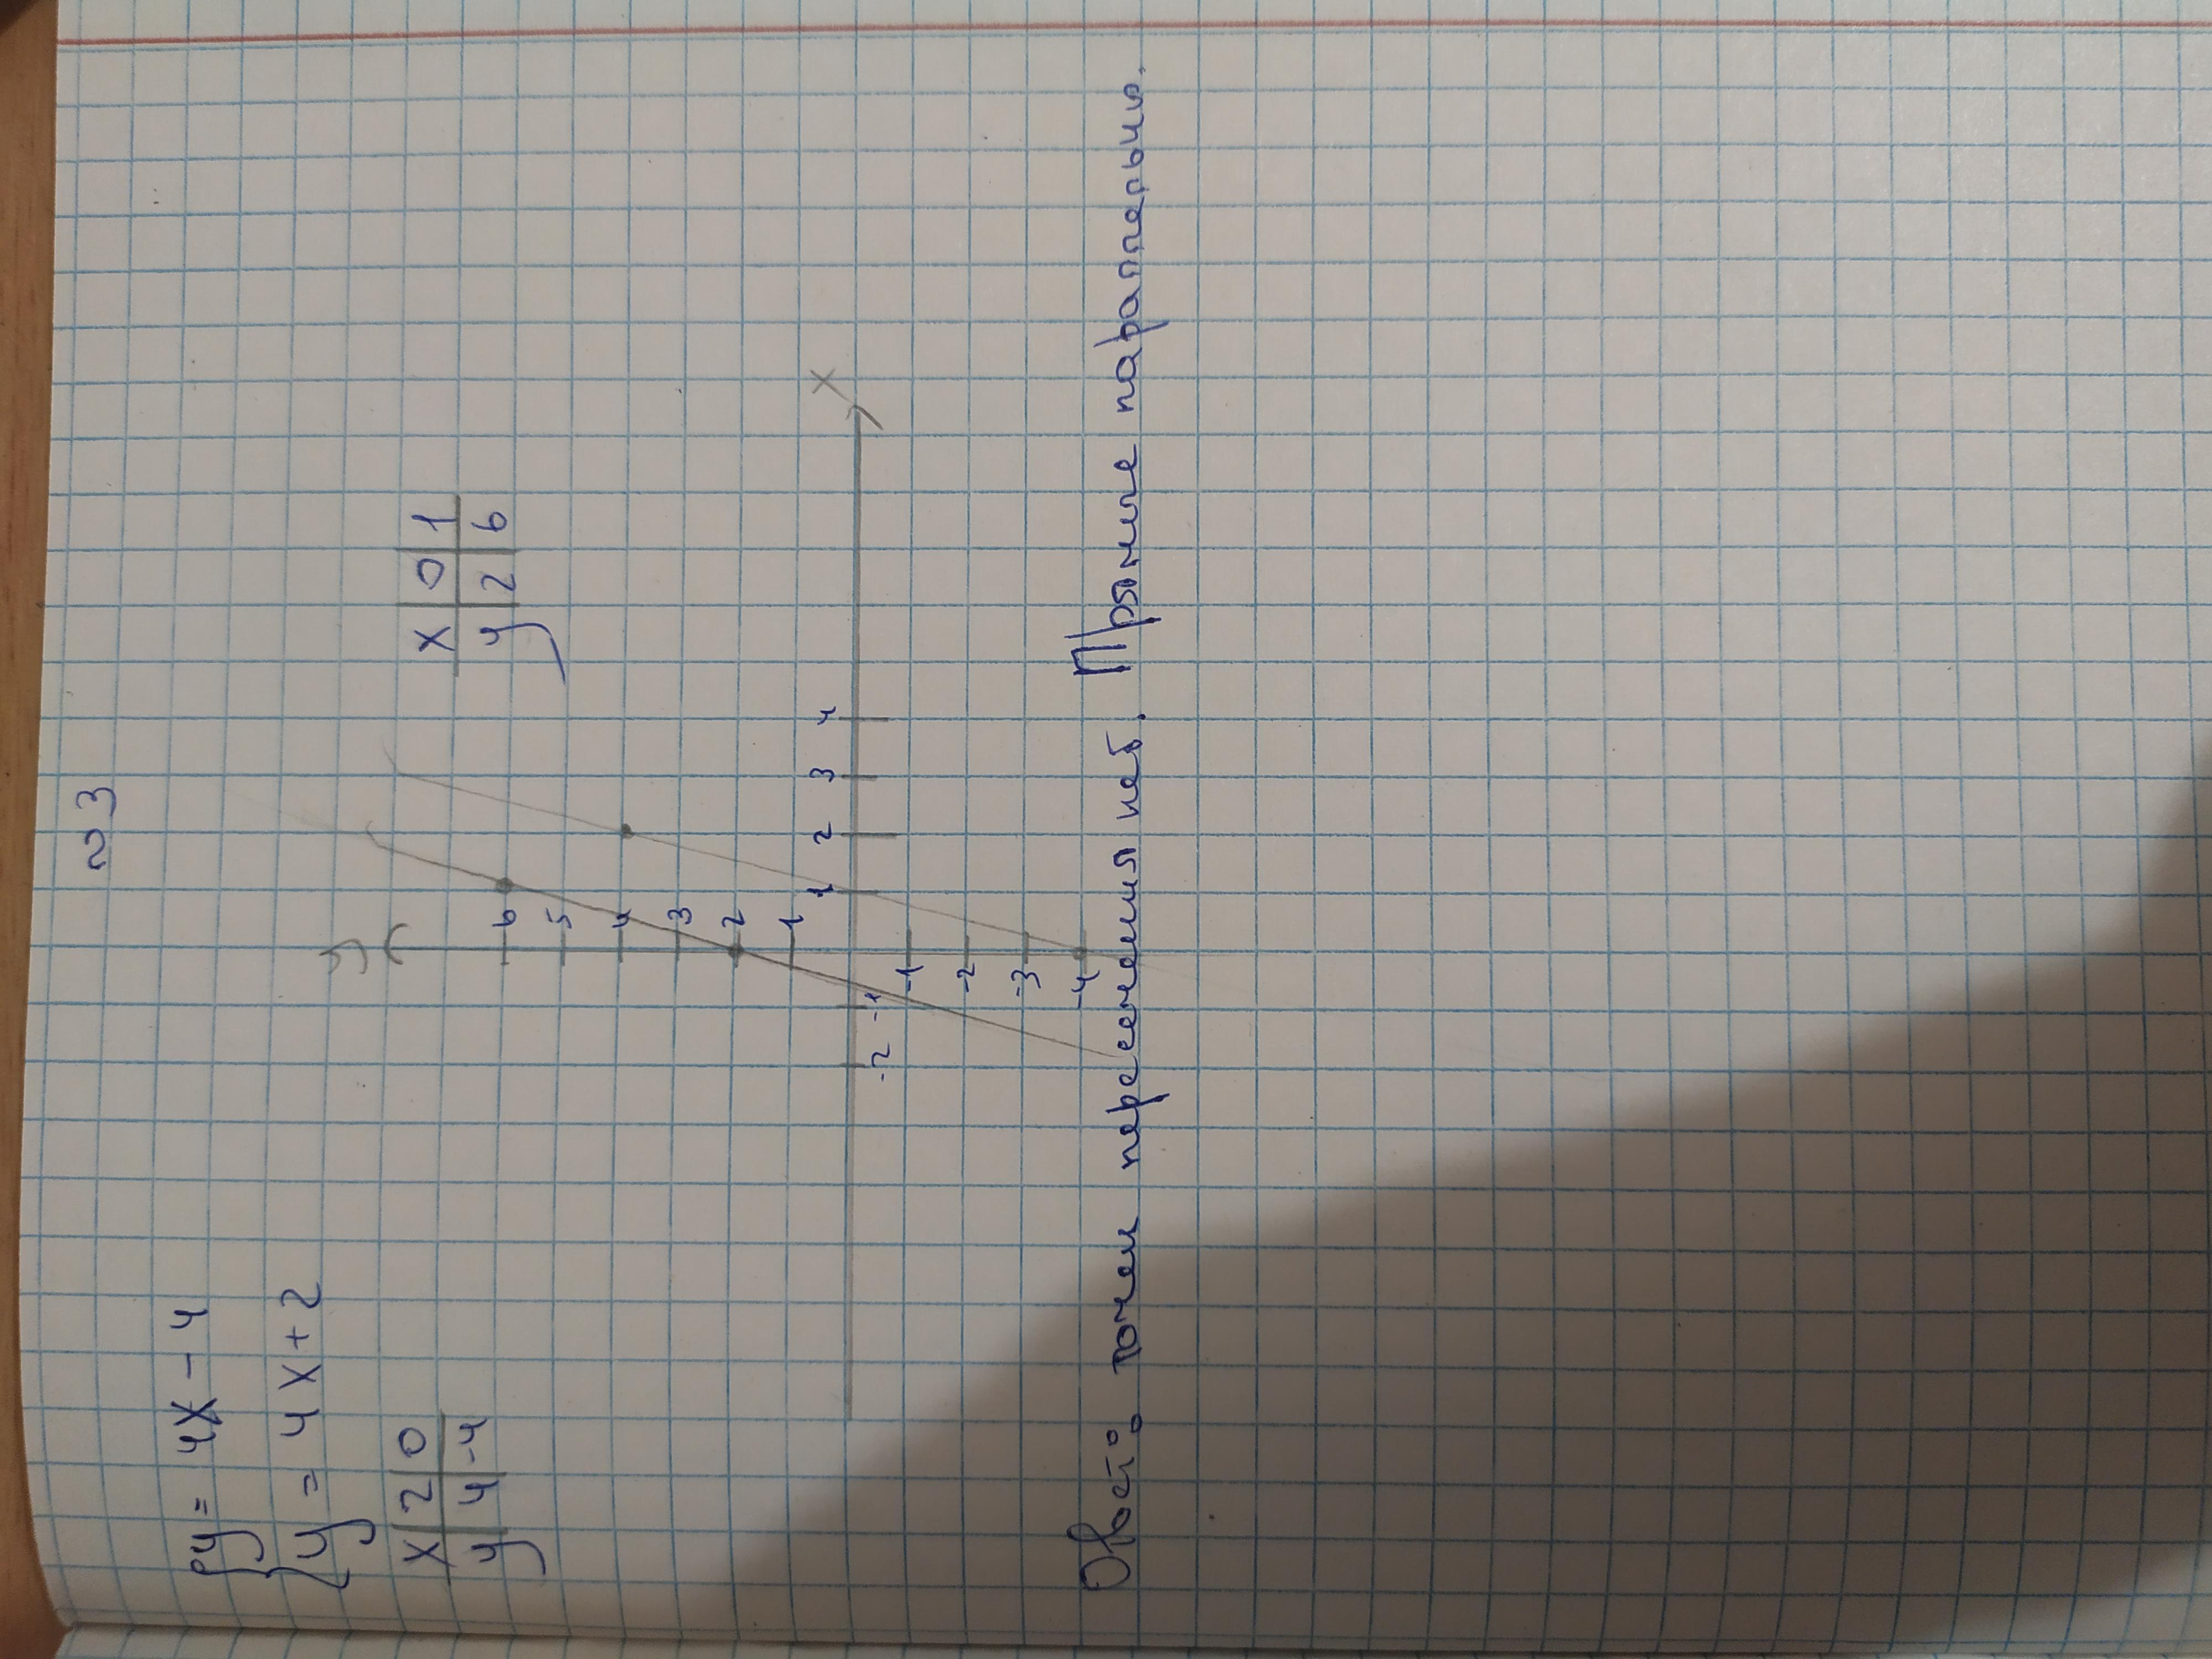 №3
{y = 4x - 4
{y = 4x + 2
x 2 0
y 4 -4
x 0 1
y 2 6
y
6
5
4
3
2
1
-2 -1 1 2 3 4 x
-1
-2
-3
-4
Ответ: точек пересечения нет. Прямые параллельны.